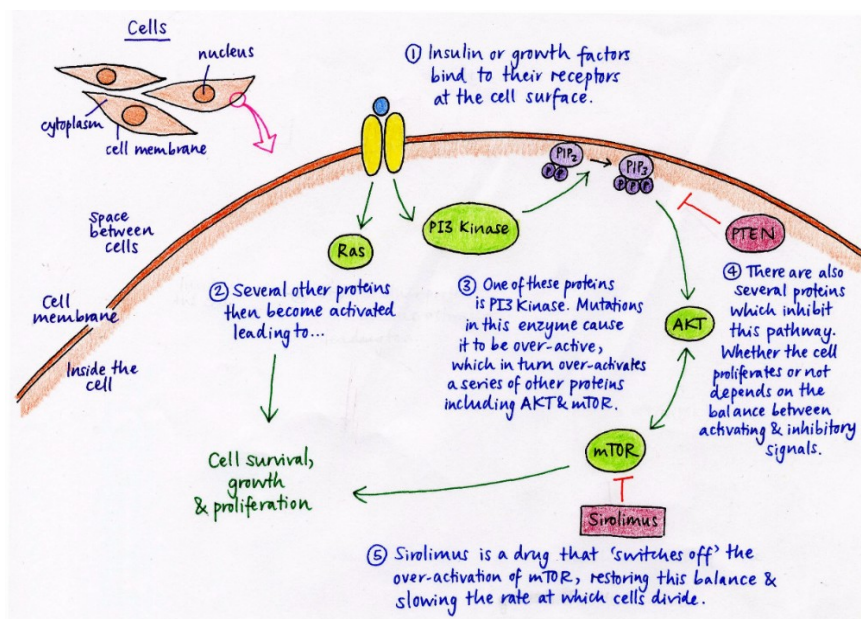 Cells
nucleus
cytoplasm
cell membrane
① Insulin or growth factors
bind to their receptors
at the cell surface.
PIP₂
P P
PIP₃
P P P
Space
between
cells
Ras
PI3 Kinase
PTEN
② Several other proteins
then become activated
leading to...
③ One of these proteins
is PI3 Kinase. Mutations
in this enzyme cause
it to be over-active,
which in turn over-activates
a series of other proteins
including AKT & mTOR.
AKT
④ There are also
several proteins
which inhibit
this pathway.
Whether the cell
proliferates or not
depends on the
balance between
activating & inhibitory
signals.
Cell
membrane
Inside the
cell
Cell survival,
growth
& proliferation
mTOR
Sirolimus
⑤ Sirolimus is a drug that 'switches off' the
over-activation of mTOR, restoring this balance &
slowing the rate at which cells divide.